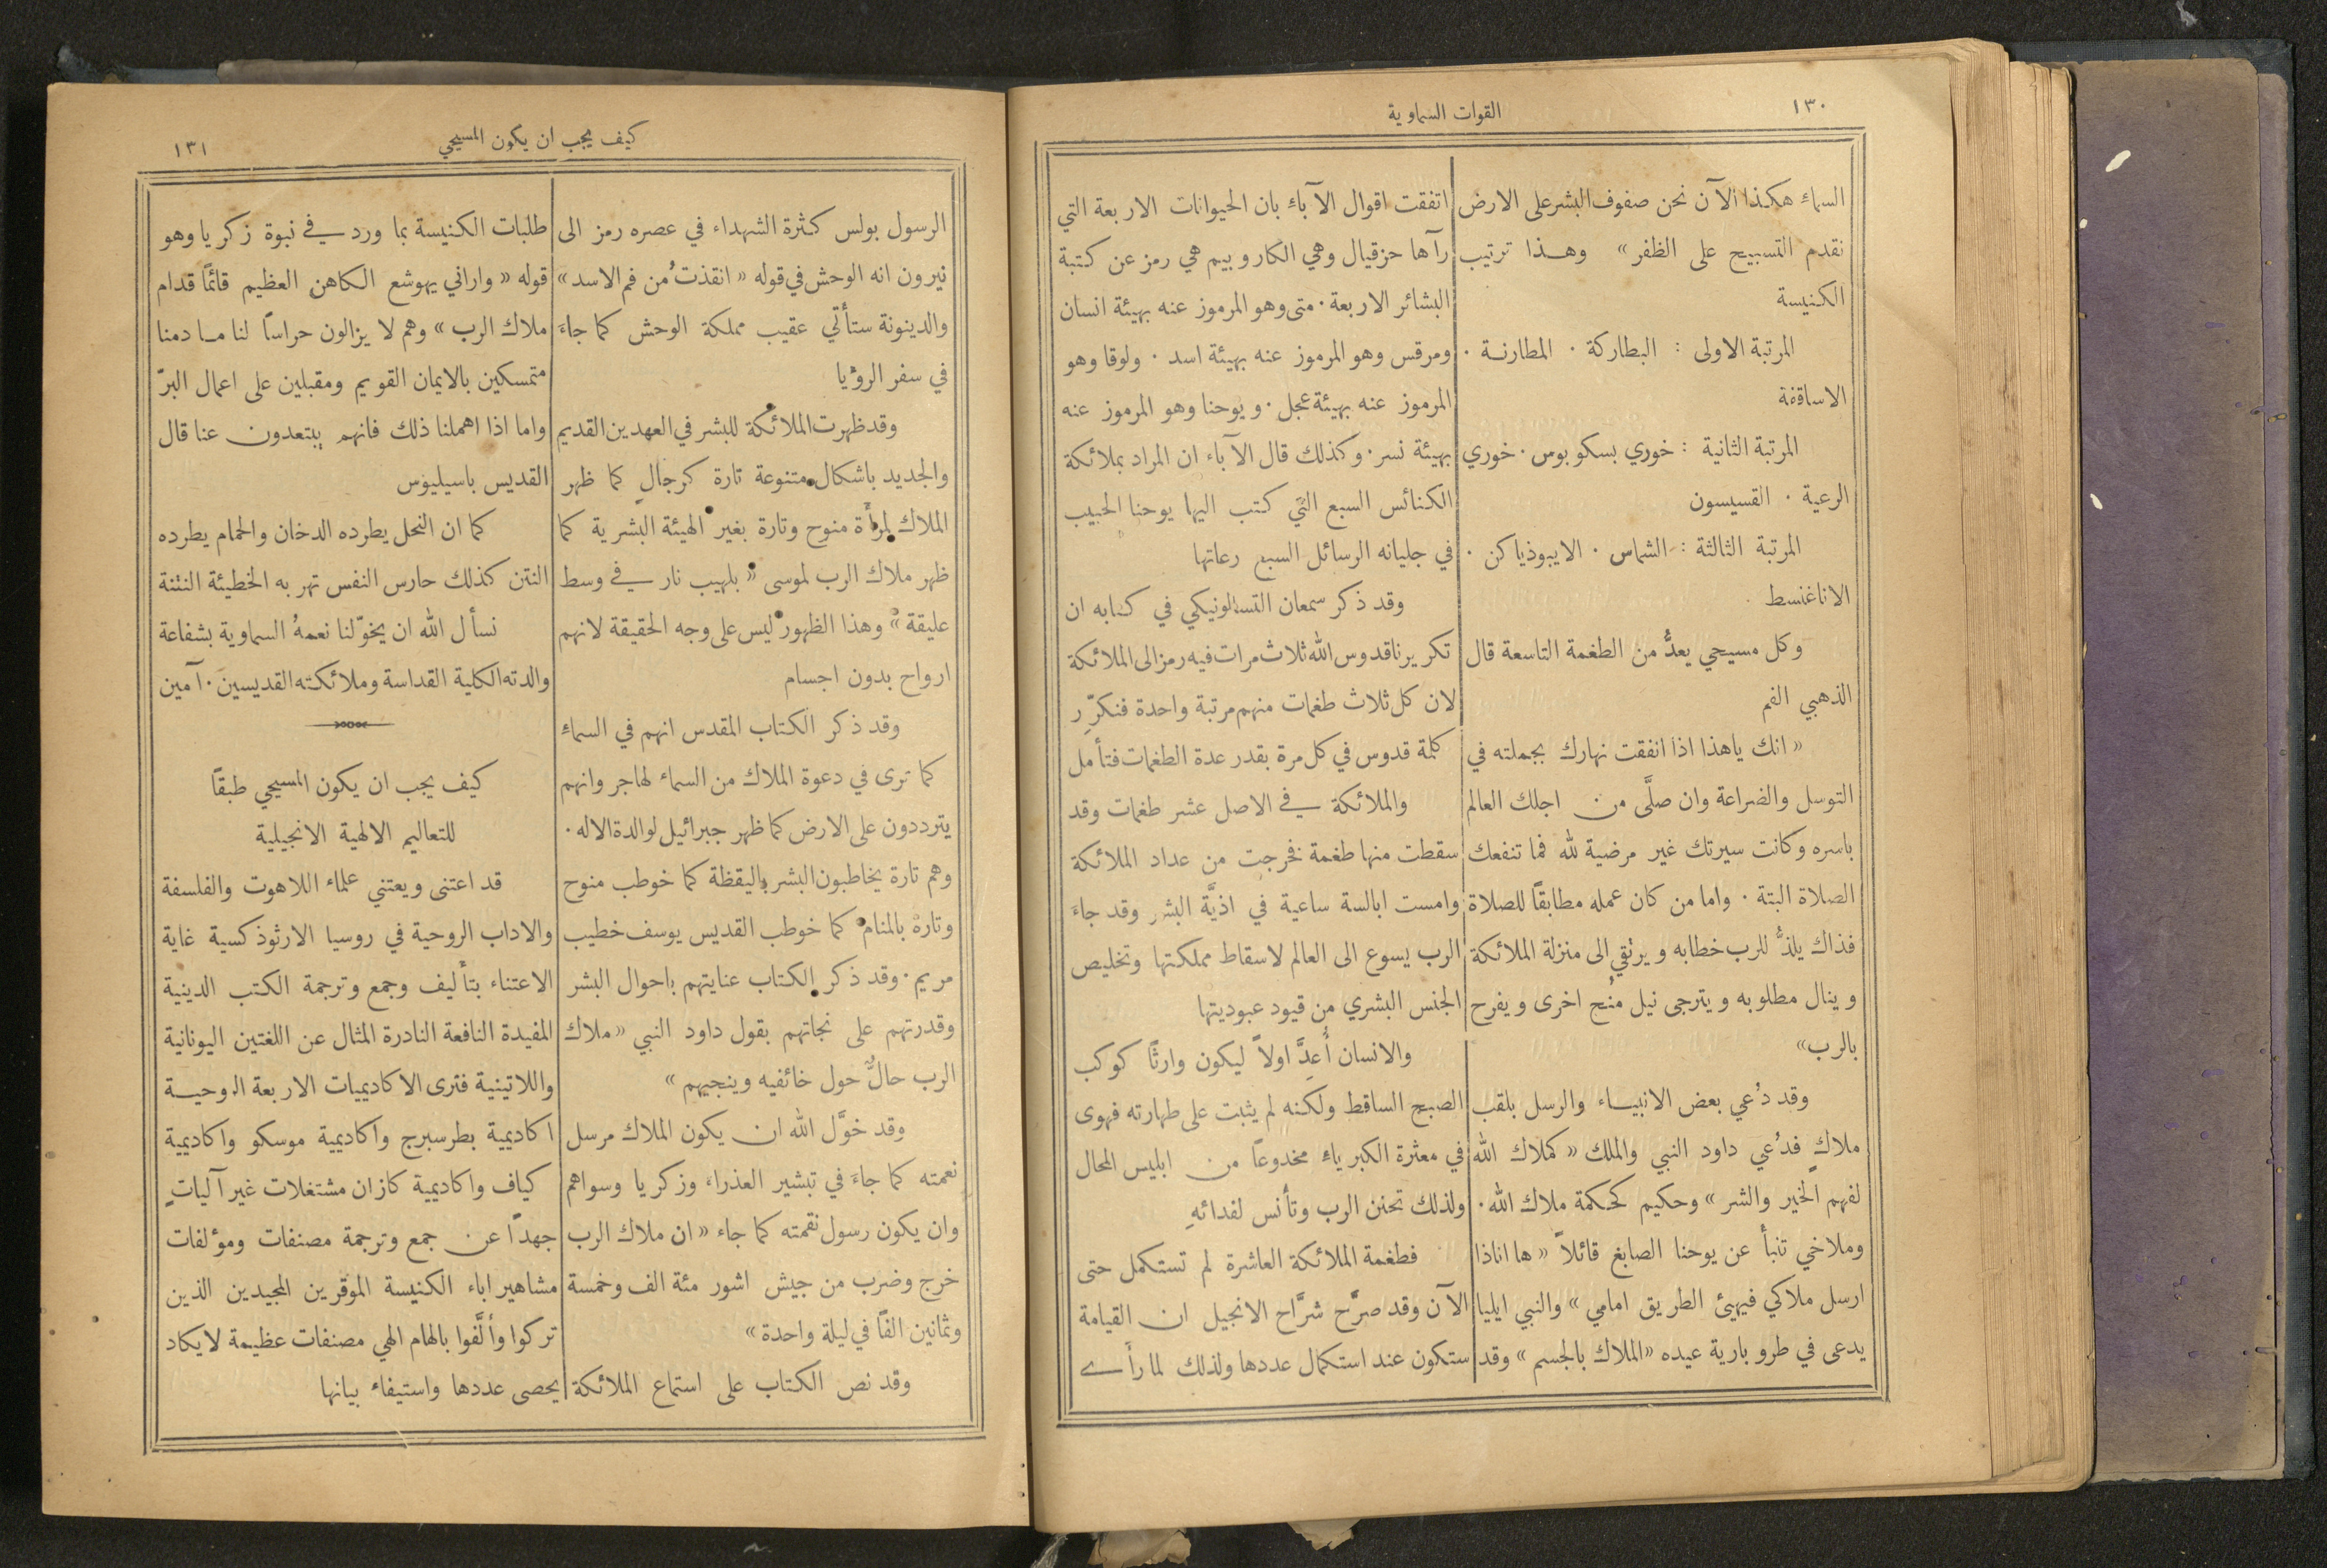 ١٣٠
القوات السماوية
السماء هكذا الآن نحن صفوف البشر على الارض
نقدم التسبيح على الظفر » وهـذا ترتيب
الكنيسة
المرتبة الاولى : البطاركة . المطارنـة .
الاساقفة
المرتبة الثانية : خوري بسكوبوس . خوري
الرعية . القسيسون
المرتبة الثالثة : الشماس . الايبوذياكن .
الاناغنسط
وكل مسيحي يعدُّ من الطغمة التاسعة قال
الذهبي الفم
« انك ياهذا اذا انفقت نهارك بجملته في
التوسل والضراعة وان صلَّى من اجلك العالم
باسره وكانت سيرتك غير مرضية لله فما تنفعك
الصلاة البتة . واما من كان عمله مطابقًا للصلاة
فذاك يلذُّ للرب خطابه ويرتقي الى منزلة الملائكة
وينال مطلوبه ويترجى نيل مُنح اخرى ويفرح
بالرب»
وقد دُعي بعض الانبيـاء والرسل بلقب
ملاكٍ فدُعي داود النبي والملك « كملاك الله
لفهم الخير والشر » وحكيم كحكمة ملاك الله .
وملاخي تنبأ عن يوحنا الصابغ قائلاً « ها اناذا
ارسل ملاكي فيهيئ الطريق امامي » والنبي ايليا
يدعى في طروبارية عيده «الملاك بالجسم » وقد
اتفقت اقوال الآباء بان الحيوانات الاربعة التي
رآها حزقيال وهي الكاروبيم هي رمز عن كتبة
البشائر الاربعة . متى وهو المرموز عنه بهيئة انسان
ومرقس وهو المرموز عنه بهيئة اسد . ولوقا وهو
المرموز عنه بهيئة عجل . ويوحنا وهو المرموز عنه
بهيئة نسر . وكذلك قال الآباء ان المراد بملائكة
الكنائس السبع التي كتب اليها يوحنا الحبيب
في جليانه الرسائل السبع رعاتها
وقد ذكر سمعان التسالونيكي في كتابه ان
تكريرنا قدوس الله ثلاث مرات فيه رمز الى الملائكة
لان كل ثلاث طغمات منهم مرتبة واحدة فنكرّر
كلمة قدوس في كل مرة بقدر عدة الطغمات فتأمل
والملائكة في الاصل عشر طغمات وقد
سقطت منها طغمة فخرجت من عداد الملائكة
وامست ابالسة ساعية في اذيَّة البشر وقد جاءَ
الرب يسوع الى العالم لاسقاط مملكتها وتخليص
الجنس البشري من قيود عبوديتها
والانسان أُعِدَّ اولاً ليكون وارثًا كوكب
الصبح الساقط ولكنه لم يثبت على طهارته فهوى
في معثرة الكبرياء مخدوعًا من ابليس المحال
ولذلك تحنن الرب وتأنس لفدائهِ
فطغمة الملائكة العاشرة لم تستكمل حتى
الآن وقد صرَّح شرَّاح الانجيل ان القيامة
ستكون عند استكمال عددها ولذلك لما رأى
كيف يجب ان يكون المسيحي
١٣١
الرسول بولس كثرة الشهداء في عصره رمز الى
نيرون انه الوحش في قوله « انقذتُ من فم الاسد»
والدينونة ستأتي عقيب مملكة الوحش كما جاءَ
في سفر الرؤيا
وقد ظهرت الملائكة للبشر في العهدين القديم
والجديد باشكال متنوعة تارة كرجالٍ كما ظهر
الملاك لمرأة منوح وتارة بغير الهيئة البشرية كما
ظهر ملاك الرب لموسى « بلهيب نار في وسط
عليقة » وهذا الظهور ليس على وجه الحقيقة لانهم
ارواح بدون اجسام
وقد ذكر الكتاب المقدس انهم في السماء
كما ترى في دعوة الملاك من السماء لهاجر وانهم
يترددون على الارض كما ظهر جبرائيل لوالدة الاله .
وهم تارة يخاطبون البشر باليقظة كما خوطب منوح
وتارة بالمنام كما خوطب القديس يوسف خطيب
مريم . وقد ذكر الكتاب عنايتهم باحوال البشر
وقدرتهم على نجاتهم بقول داود النبي « ملاك
الرب حالٌّ حول خائفيه وينجيهم »
وقد خوَّل الله ان يكون الملاك مرسل
نعمته كما جاءَ في تبشير العذراء وزكريا وسواهم
وان يكون رسول نقمته كما جاء « ان ملاك الرب
خرج وضرب من جيش اشور مئة الف وخمسة
وثمانين الفًا في ليلة واحدة »
وقد نص الكتاب على استماع الملائكة
طلبات الكنيسة بما ورد في نبوة زكريا وهو
قوله « واراني يهوشع الكاهن العظيم قائمًا قدام
ملاك الرب » وهم لا يزالون حراسًا لنا مـا دمنا
متمسكين بالايمان القويم ومقبلين على اعمال البرّ
واما اذا اهملنا ذلك فانهم يبتعدون عنا قال
القديس باسيليوس
كما ان النحل يطرده الدخان والحمام يطرده
النتن كذلك حارس النفس تهر به الخطيئة النتنة
نسأل الله ان يخوّلنا نعمهُ السماوية بشفاعة
والدته الكلية القداسة وملائكته القديسين . آمين
كيف يجب ان يكون المسيحي طبقًا
للتعاليم الالهية الانجيلية
قد اعتنى ويعتني علماء اللاهوت والفلسفة
والاداب الروحية في روسيا الارثوذكسية غاية
الاعتناء بتأليف وجمع وترجمة الكتب الدينية
المفيدة النافعة النادرة المثال عن اللغتين اليونانية
واللاتينية فترى الاكاديميات الاربعة الروحيـة
اكاديمية بطرسبرج واكاديمية موسكو واكاديمية
كياف واكاديمية كازان مشتغلات غير آلياتٍ
جهدًا عن جمع وترجمة مصنفات ومؤلفات
مشاهير اباء الكنيسة الموقرين المجيدين الذين
تركوا وألَّفوا بالهام الهي مصنفات عظيمة لا يكاد
يحصى عددها واستيفاء بيانها